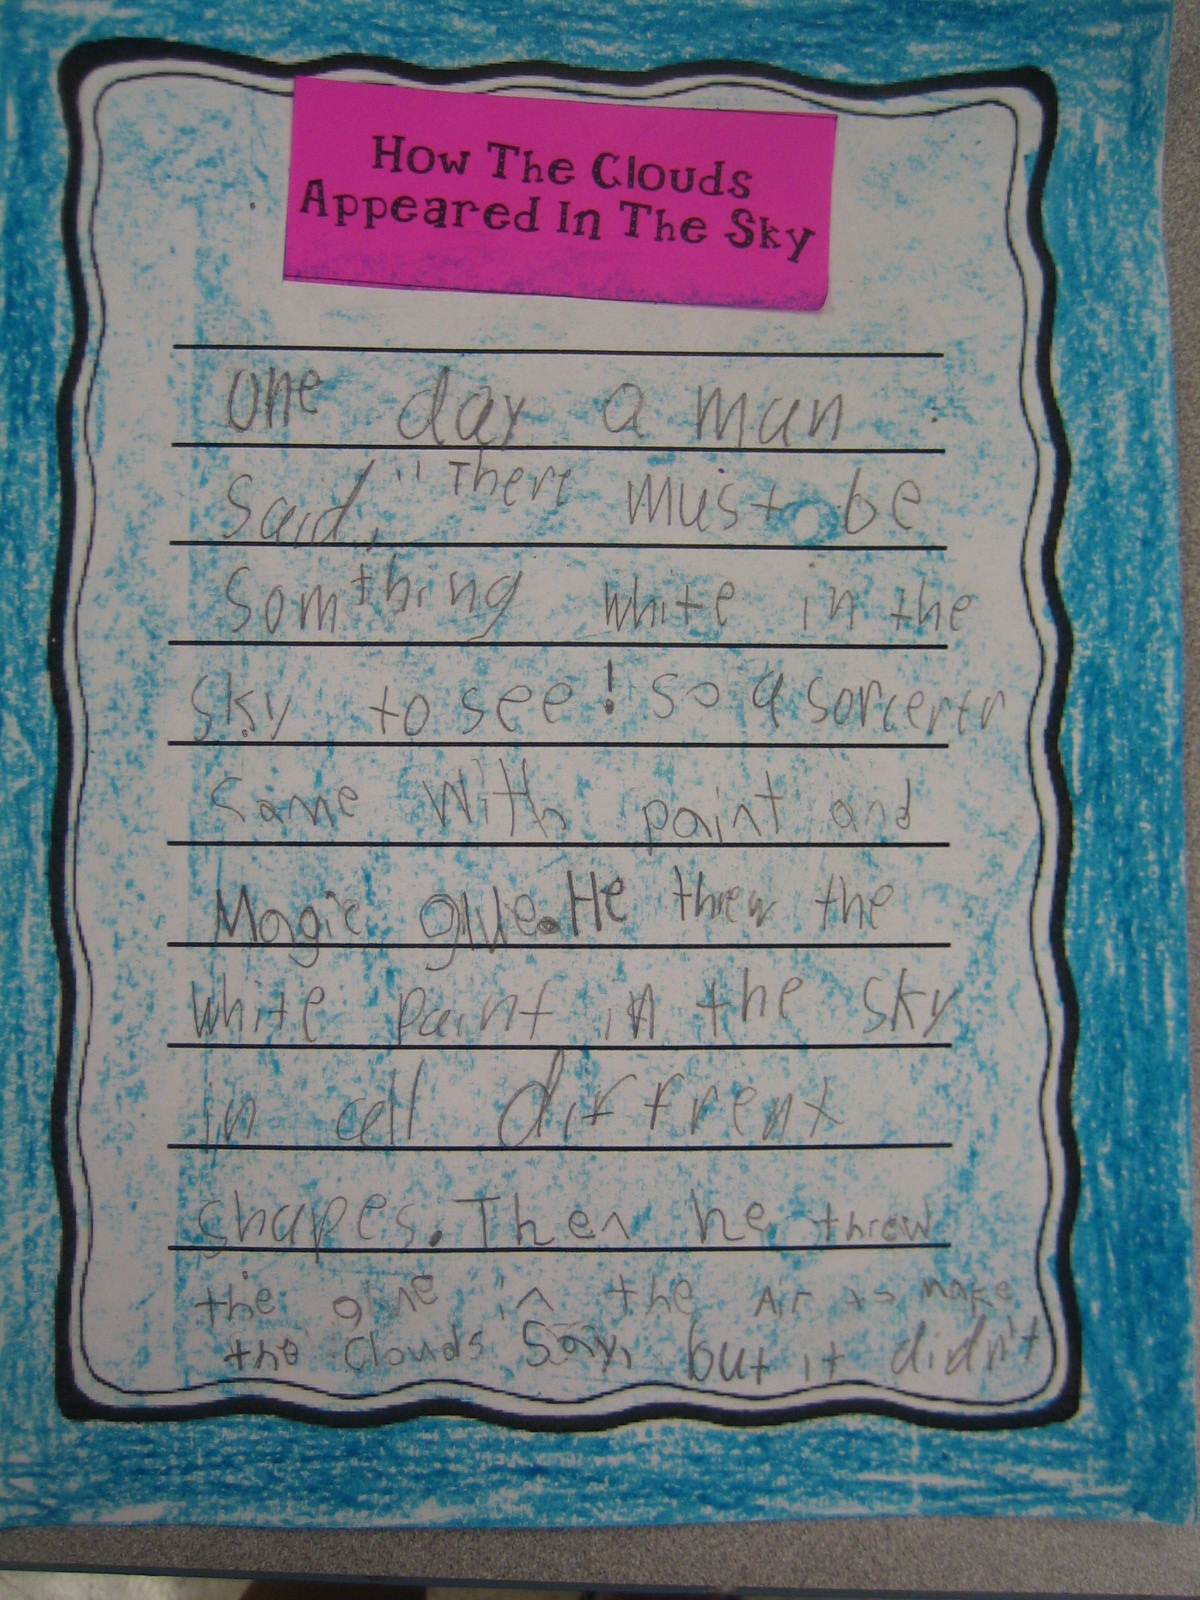 How The Clouds
Appeared In The Sky
One day a man
Said, "There must be
Somthing white in the
sky to see! So a sorcerer
came with paint and
Magic glue. He threw the
white paint in the sky
in all diffrent
shapes. Then he threw
the glue in the Air to make
the clouds Say, but it didn't